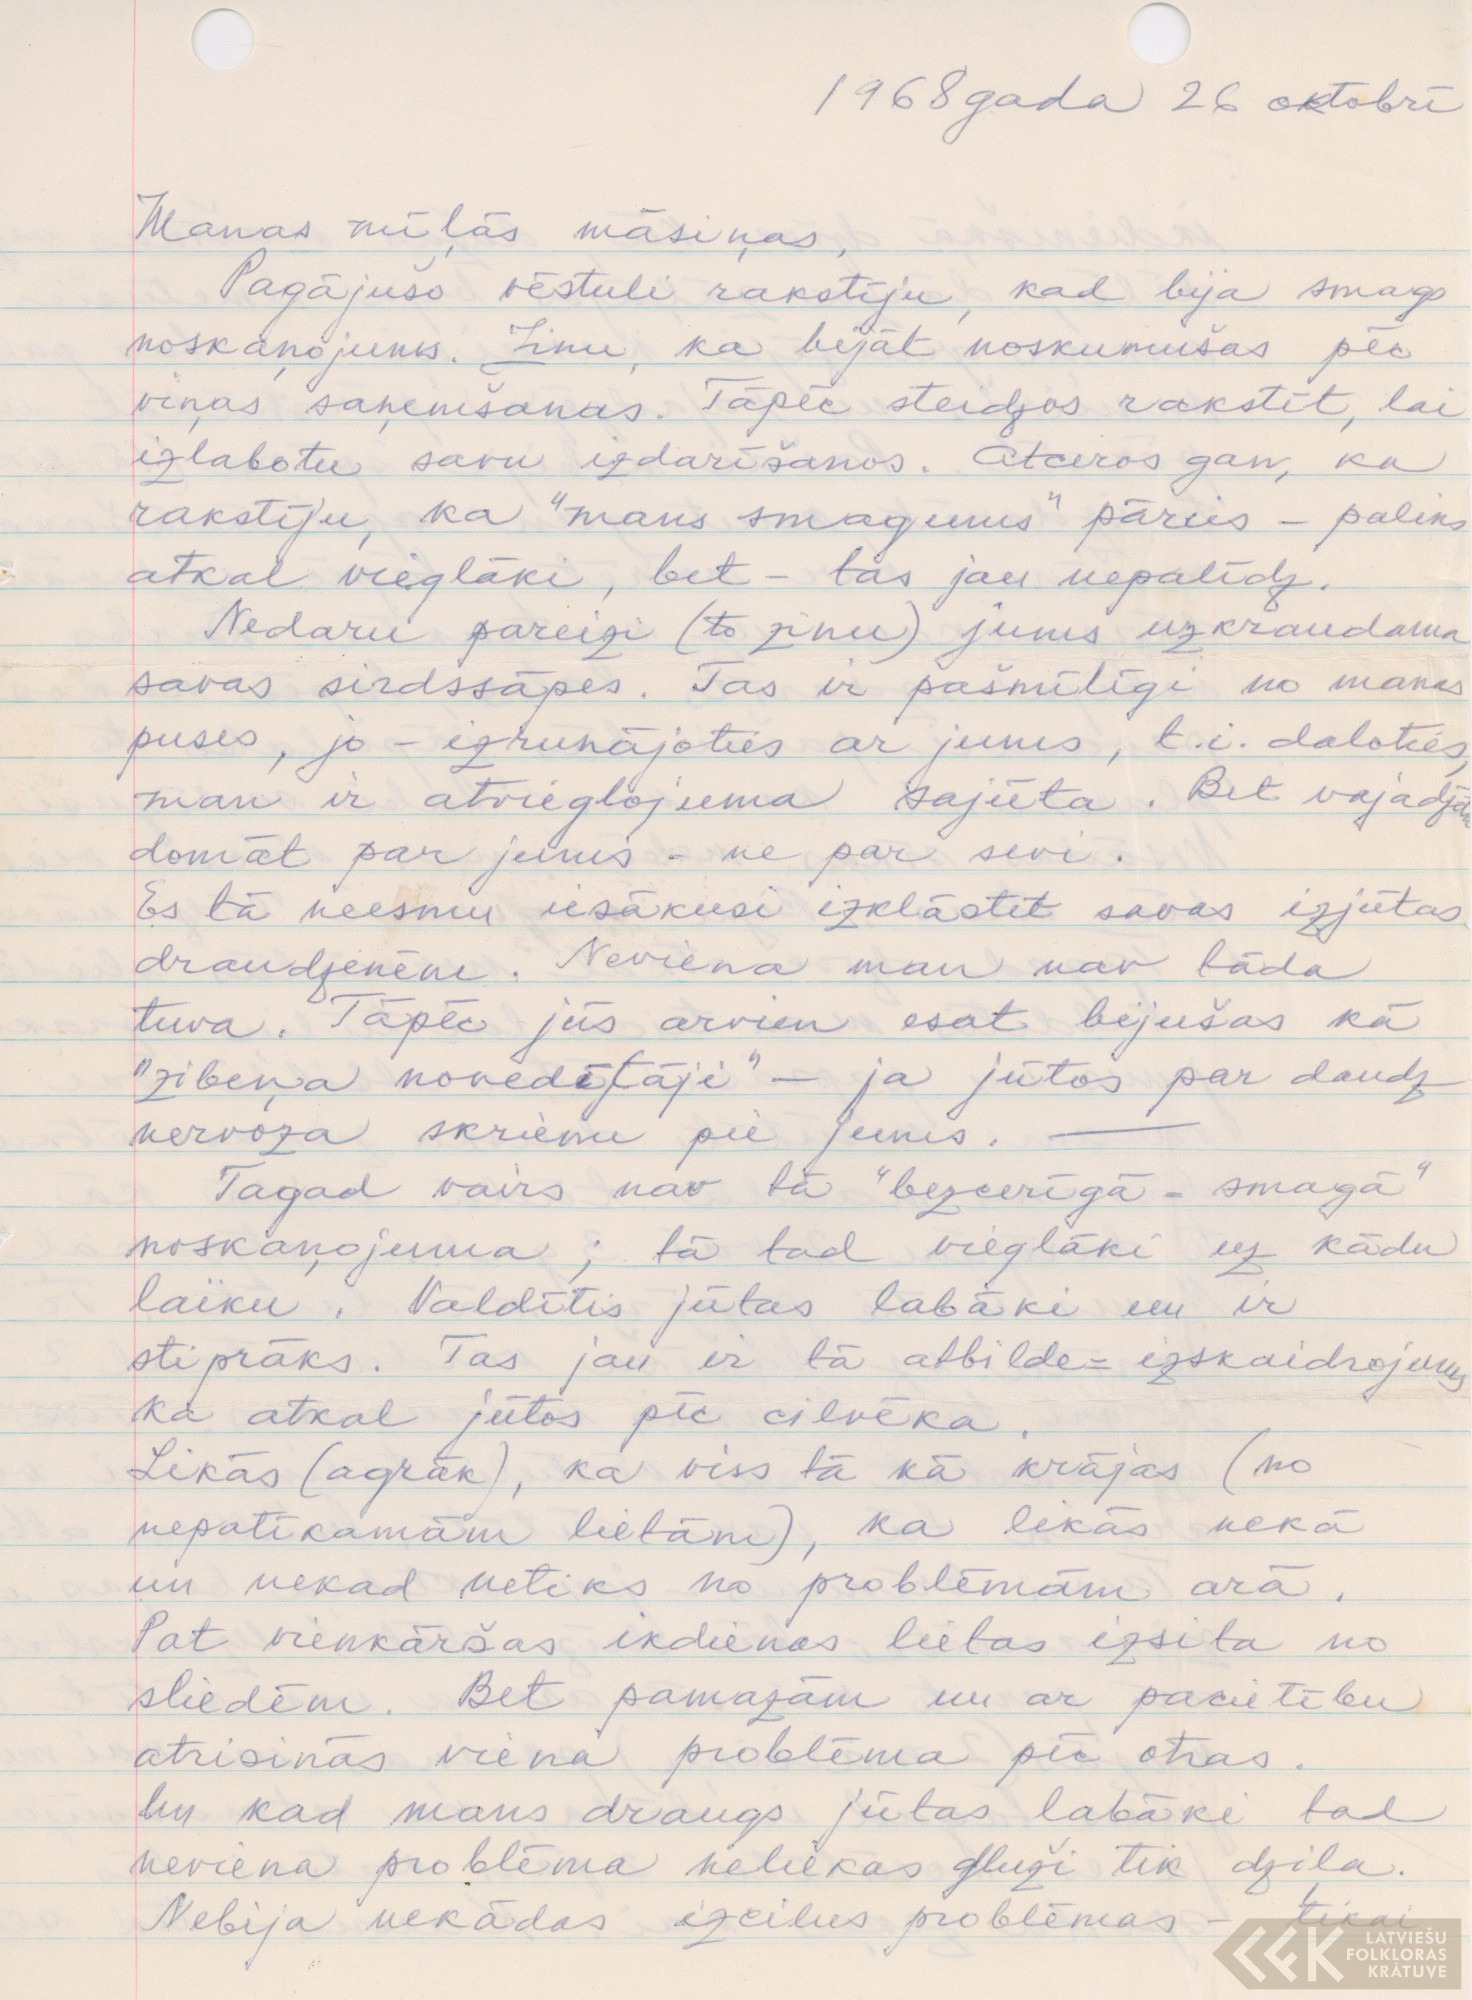 1968 gada 26 oktobrī
Manas mīļās māsiņas,
Pagājušo vēstuli rakstīju, kad bija smags
noskaņojums. Zinu, ka bijāt noskumušas pēc
viņas saņemšanas. Tāpēc steidzos rakstīt, lai
izlabotu savu izdarīšanos. Atceros gan, ka
rakstīju, ka "mans smagums" pāries – paliks
atkal vieglāki, bet – tas jau nepalīdz.
Nedaru pareizi (to zinu) jums uzkraudama
savas sirdssāpes. Tas ir pašmīlīgi no manas
puses, jo – izrunājoties ar jums, t.i. daloties,
man ir atvieglojuma sajūta. Bet vajadzētu
domāt par jums – ne par sevi.
Es tā neesmu iesākusi izklāstīt savas izjūtas
draudzenēm. Neviena man nav tāda
tuva. Tāpēc jūs arvien esat bijušas kā
"zibeņa novedētāji" – ja jūtos par daudz
nervoza skrienu pie jums. —
Tagad vairs nav tā "bezcerīgā – smagā"
noskaņojuma; tā tad vieglāki uz kādu
laiku. Valdītis jūtas labāki un ir
stiprāks. Tas jau ir tā atbilde = izskaidrojums
ka atkal jūtos pēc cilvēka.
Likās (agrāk), ka viss tā kā krājas (no
nepatīkamām lietām), ka likās nekā
un nekad netiks no problēmām arā.
Pat vienkāršas ikdienas lietas izsita no
sliedēm. Bet pamazām un ar pacietību
atrisinās viena problēma pēc otras.
Un kad mans draugs jūtas labāki tad
neviena problēma neliekas gluži tik dziļa.
Nebija nekādas izcilus problēmas – tikai
LATVIEŠU
FOLKLORAS
KRĀTUVE